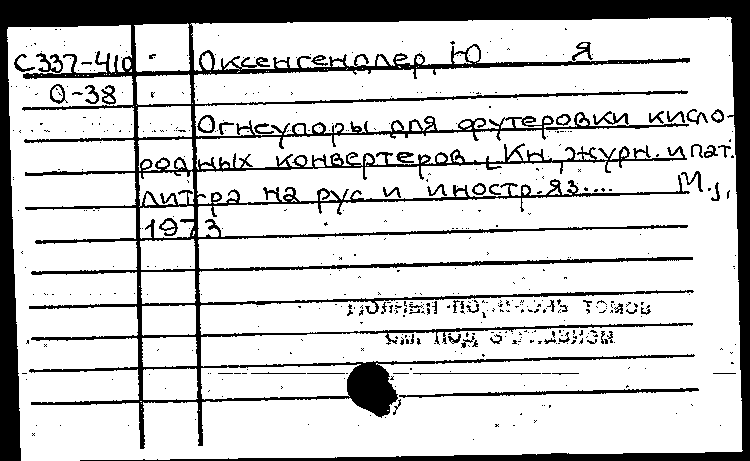 С337-410 Оксенгендлер, Ю Я
О-38
Огнеупоры для футеровки кисло-
родных конвертеров. [Кн., журн. и пат.
лит-ра на рус. и иностр. яз.... М.,
1973
Полный перечень томов
см. под заглавием